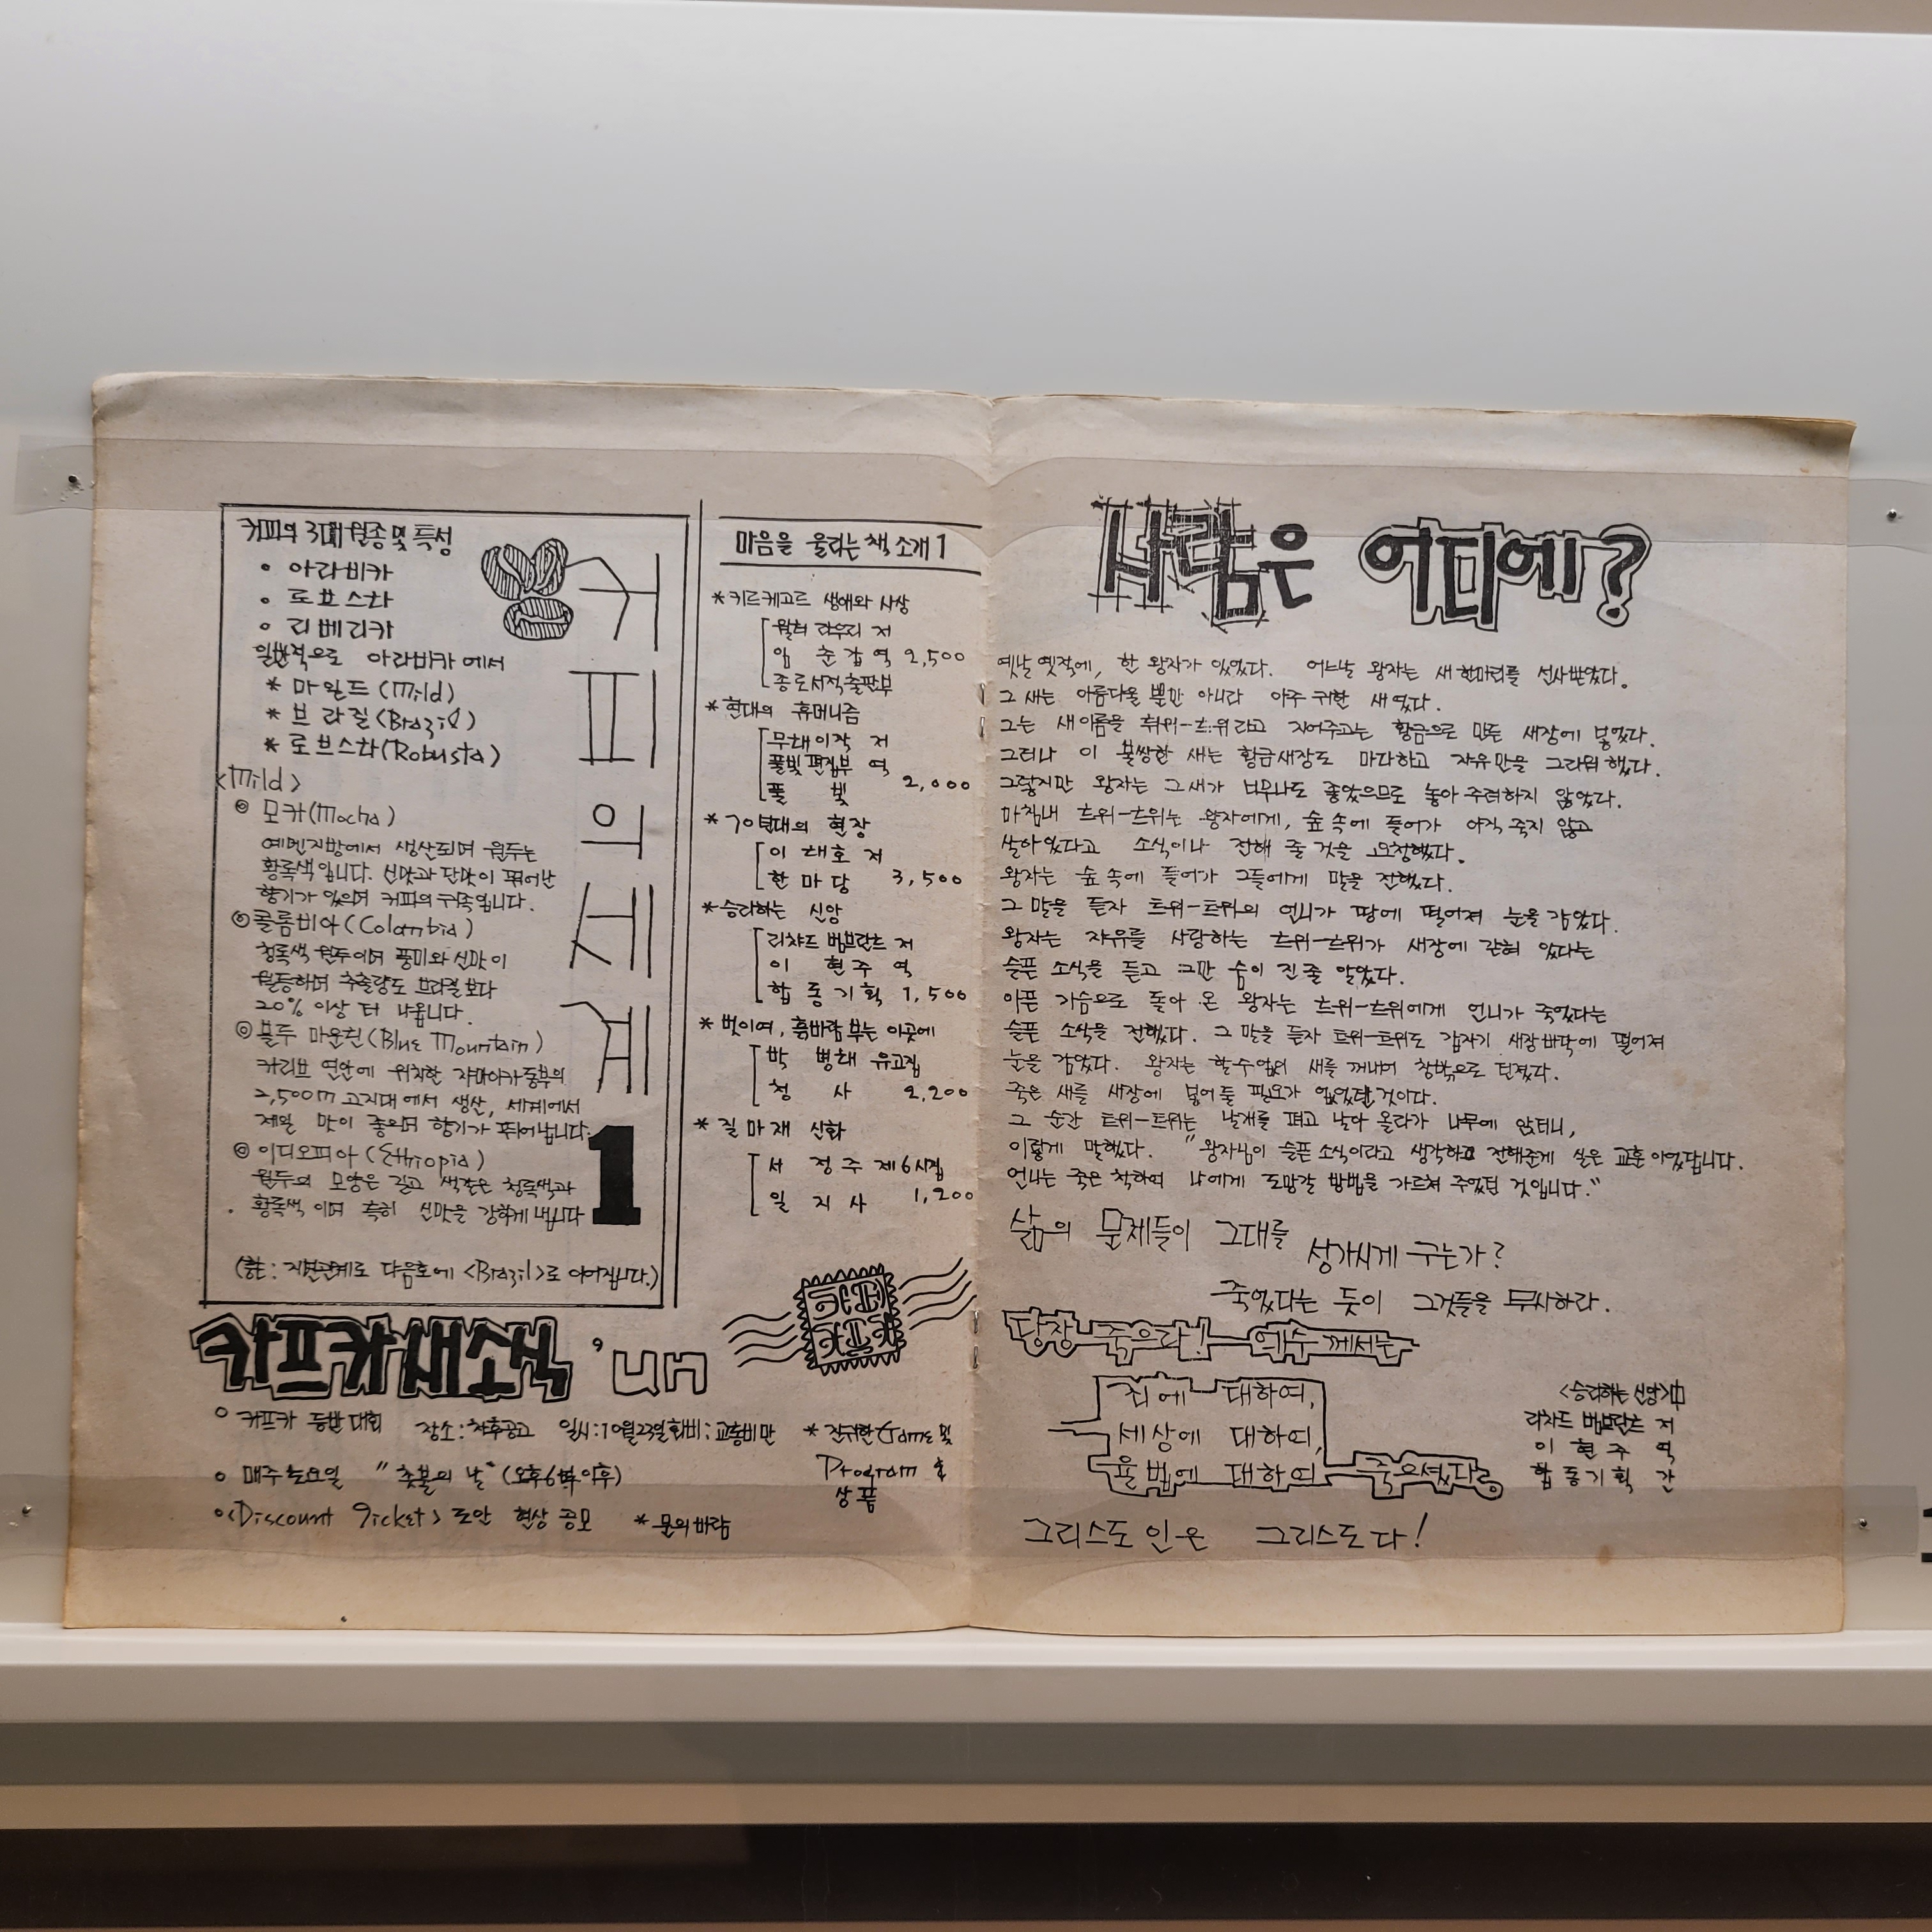 커피의 3대 원종 및 특성
∘ 아라비카
∘ 로브스타
∘ 리베리카
일반적으로 아라비카에서
* 마일드(Mild)
* 브라질(Brazil)
* 로브스타(Robusta)
<Mild>
◎ 모카(Mocha)
예멘지방에서 생산되며 원두는
황록색입니다. 신맛과 단맛이 뛰어난
향기가 있으며 커피의 귀족입니다.
◎ 콜롬비아(Colombia)
청록색 원두이며 풍미와 신맛이
월등하며 추출량도 브라질보다
20% 이상 더 나옵니다.
◎ 블루 마운틴(Blue Mountain)
카리브 연안에 위치한 자마이카 동부의
2,500m 고지대에서 생산, 세계에서
제일 맛이 좋으며 향기가 뛰어납니다.
◎ 이디오피아(Ethiopia)
원두의 모양은 길고 색깔은 청록색과
황록색이며 특히 신맛을 강하게 냅니다
(註: 지면관계로 다음호에 <Brazil>로 이어집니다.)
커피의 세계
1
마음을 울리는 책 소개 1
* 키르케고르 생애와 사상
월터 라우리 저
임 춘갑 역 2,500
종로서적출판부
* 현대의 휴머니즘
무태이작 저
풀빛 편집부 역
풀 빛 2,000
* 70년대의 현장
이 태호 저
한 마 당 3,500
* 승리하는 신앙
리챠드 범브란트 저
이 현주 역
합동기획 1,500
* 벗이여, 흙바람 부는 이곳에
박 병태 유고집
청 사 2,200
* 질마재 신화
서 정주 제6시집
일 지 사 1,200
카프카 새소식 'un
∘ 카프카 등반대회 장소:차후공고 일시:10월23일 회비:교통비만 * 진귀한 Game 및
Program & 상품
∘ 매주 토요일 "촛불의 날" (오후6시 이후)
∘ <Discount Ticket> 도안 현상 공모 * 문의 바람
사람은 어디에?
옛날 옛적에, 한 왕자가 있었다. 어느날 왕자는 새 한마리를 선사받았다.
그 새는 아름다울 뿐만 아니라 아주 귀한 새였다.
그는 새이름을 튀위-트위라고 지어주고는 황금으로 만든 새장에 넣었다.
그러나 이 불쌍한 새는 황금새장도 마다하고 자유만을 그리워 했다.
그렇지만 왕자는 그 새가 너무나도 좋았으므로 놓아 주려하지 않았다.
마침내 트위-트위는 왕자에게, 숲 속에 들어가 아직 죽지 않고
살아있다고 소식이나 전해 줄 것을 요청했다.
왕자는 숲 속에 들어가 그들에게 말을 전했다.
그 말을 듣자 트위-트위의 언니가 땅에 떨어져 눈을 감았다.
왕자는 자유를 사랑하는 트위-트위가 새장에 갇혀 있다는
슬픈 소식을 듣고 그만 숨이 진 줄 알았다.
아픈 가슴으로 돌아 온 왕자는 트위-트위에게 언니가 죽었다는
슬픈 소식을 전했다. 그 말을 듣자 트위-트위도 갑자기 새장바닥에 떨어져
눈을 감았다. 왕자는 할수없이 새를 꺼내어 창밖으로 던졌다.
죽은 새를 새장에 넣어둘 필요가 없었던 것이다.
그 순간 트위-트위는 날개를 펴고 날아 올라가 나무에 앉더니,
이렇게 말했다. "왕자님이 슬픈 소식이라고 생각하고 전해준게 실은 교훈이었답니다.
언니는 죽은 척하여 나에게 도망갈 방법을 가르쳐 주었던 것입니다."
삶의 문제들이 그대를 성가시게 구는가?
죽었다는 듯이 그것들을 무시하라.
당장 죽으라! 예수께서는
죄에 대하여,
세상에 대하여,
율법에 대하여 죽으셨다.
<승리하는 신앙>中
리챠드 범브란트 저
이 현주 역
합동기획 간
그리스도인은 그리스도다!